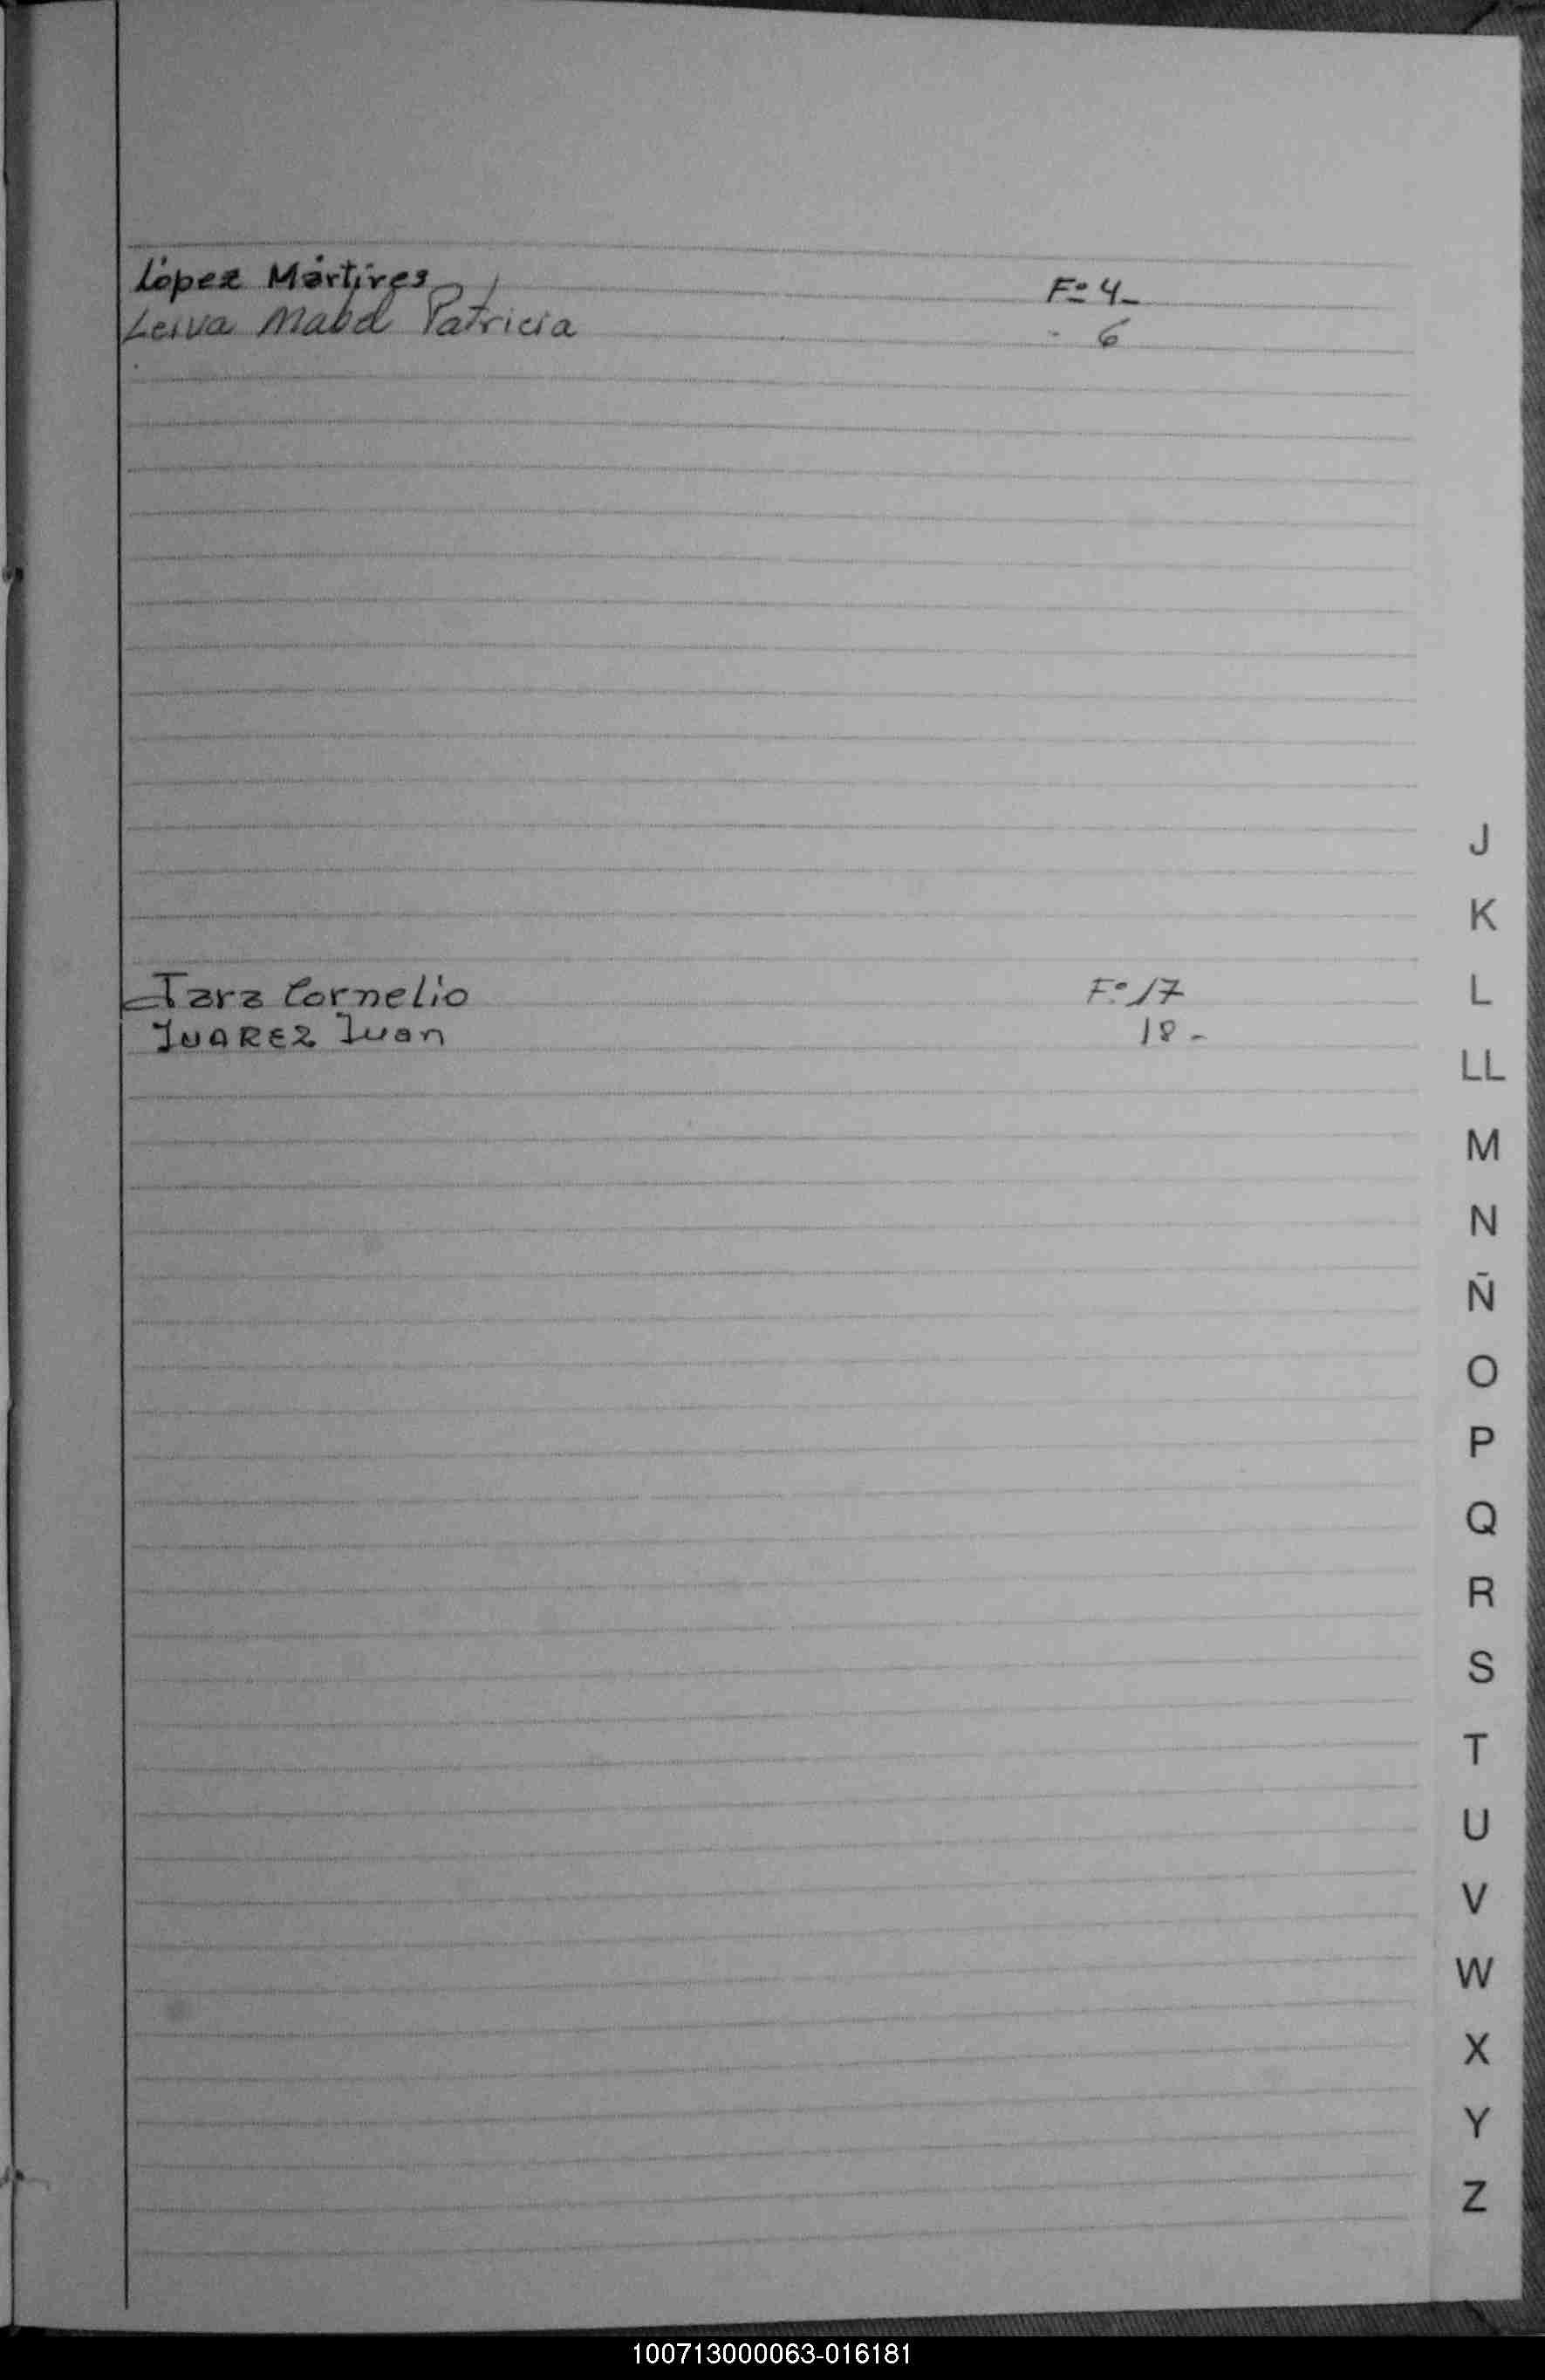 López Mártires F= 4-
Leiva Mabel Patricia - 6
J
K
Jara Cornelio F.° 17
L
JUAREZ Juan 18 -
LL
M
N
Ñ
O
P
Q
R
S
T
U
V
W
X
Y
Z
100713000063-016181